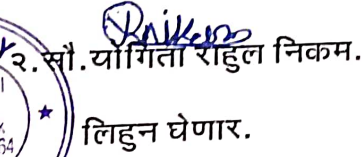 २.सौ.योगिता राहुल निकम.
लिहुन घेणार.
64